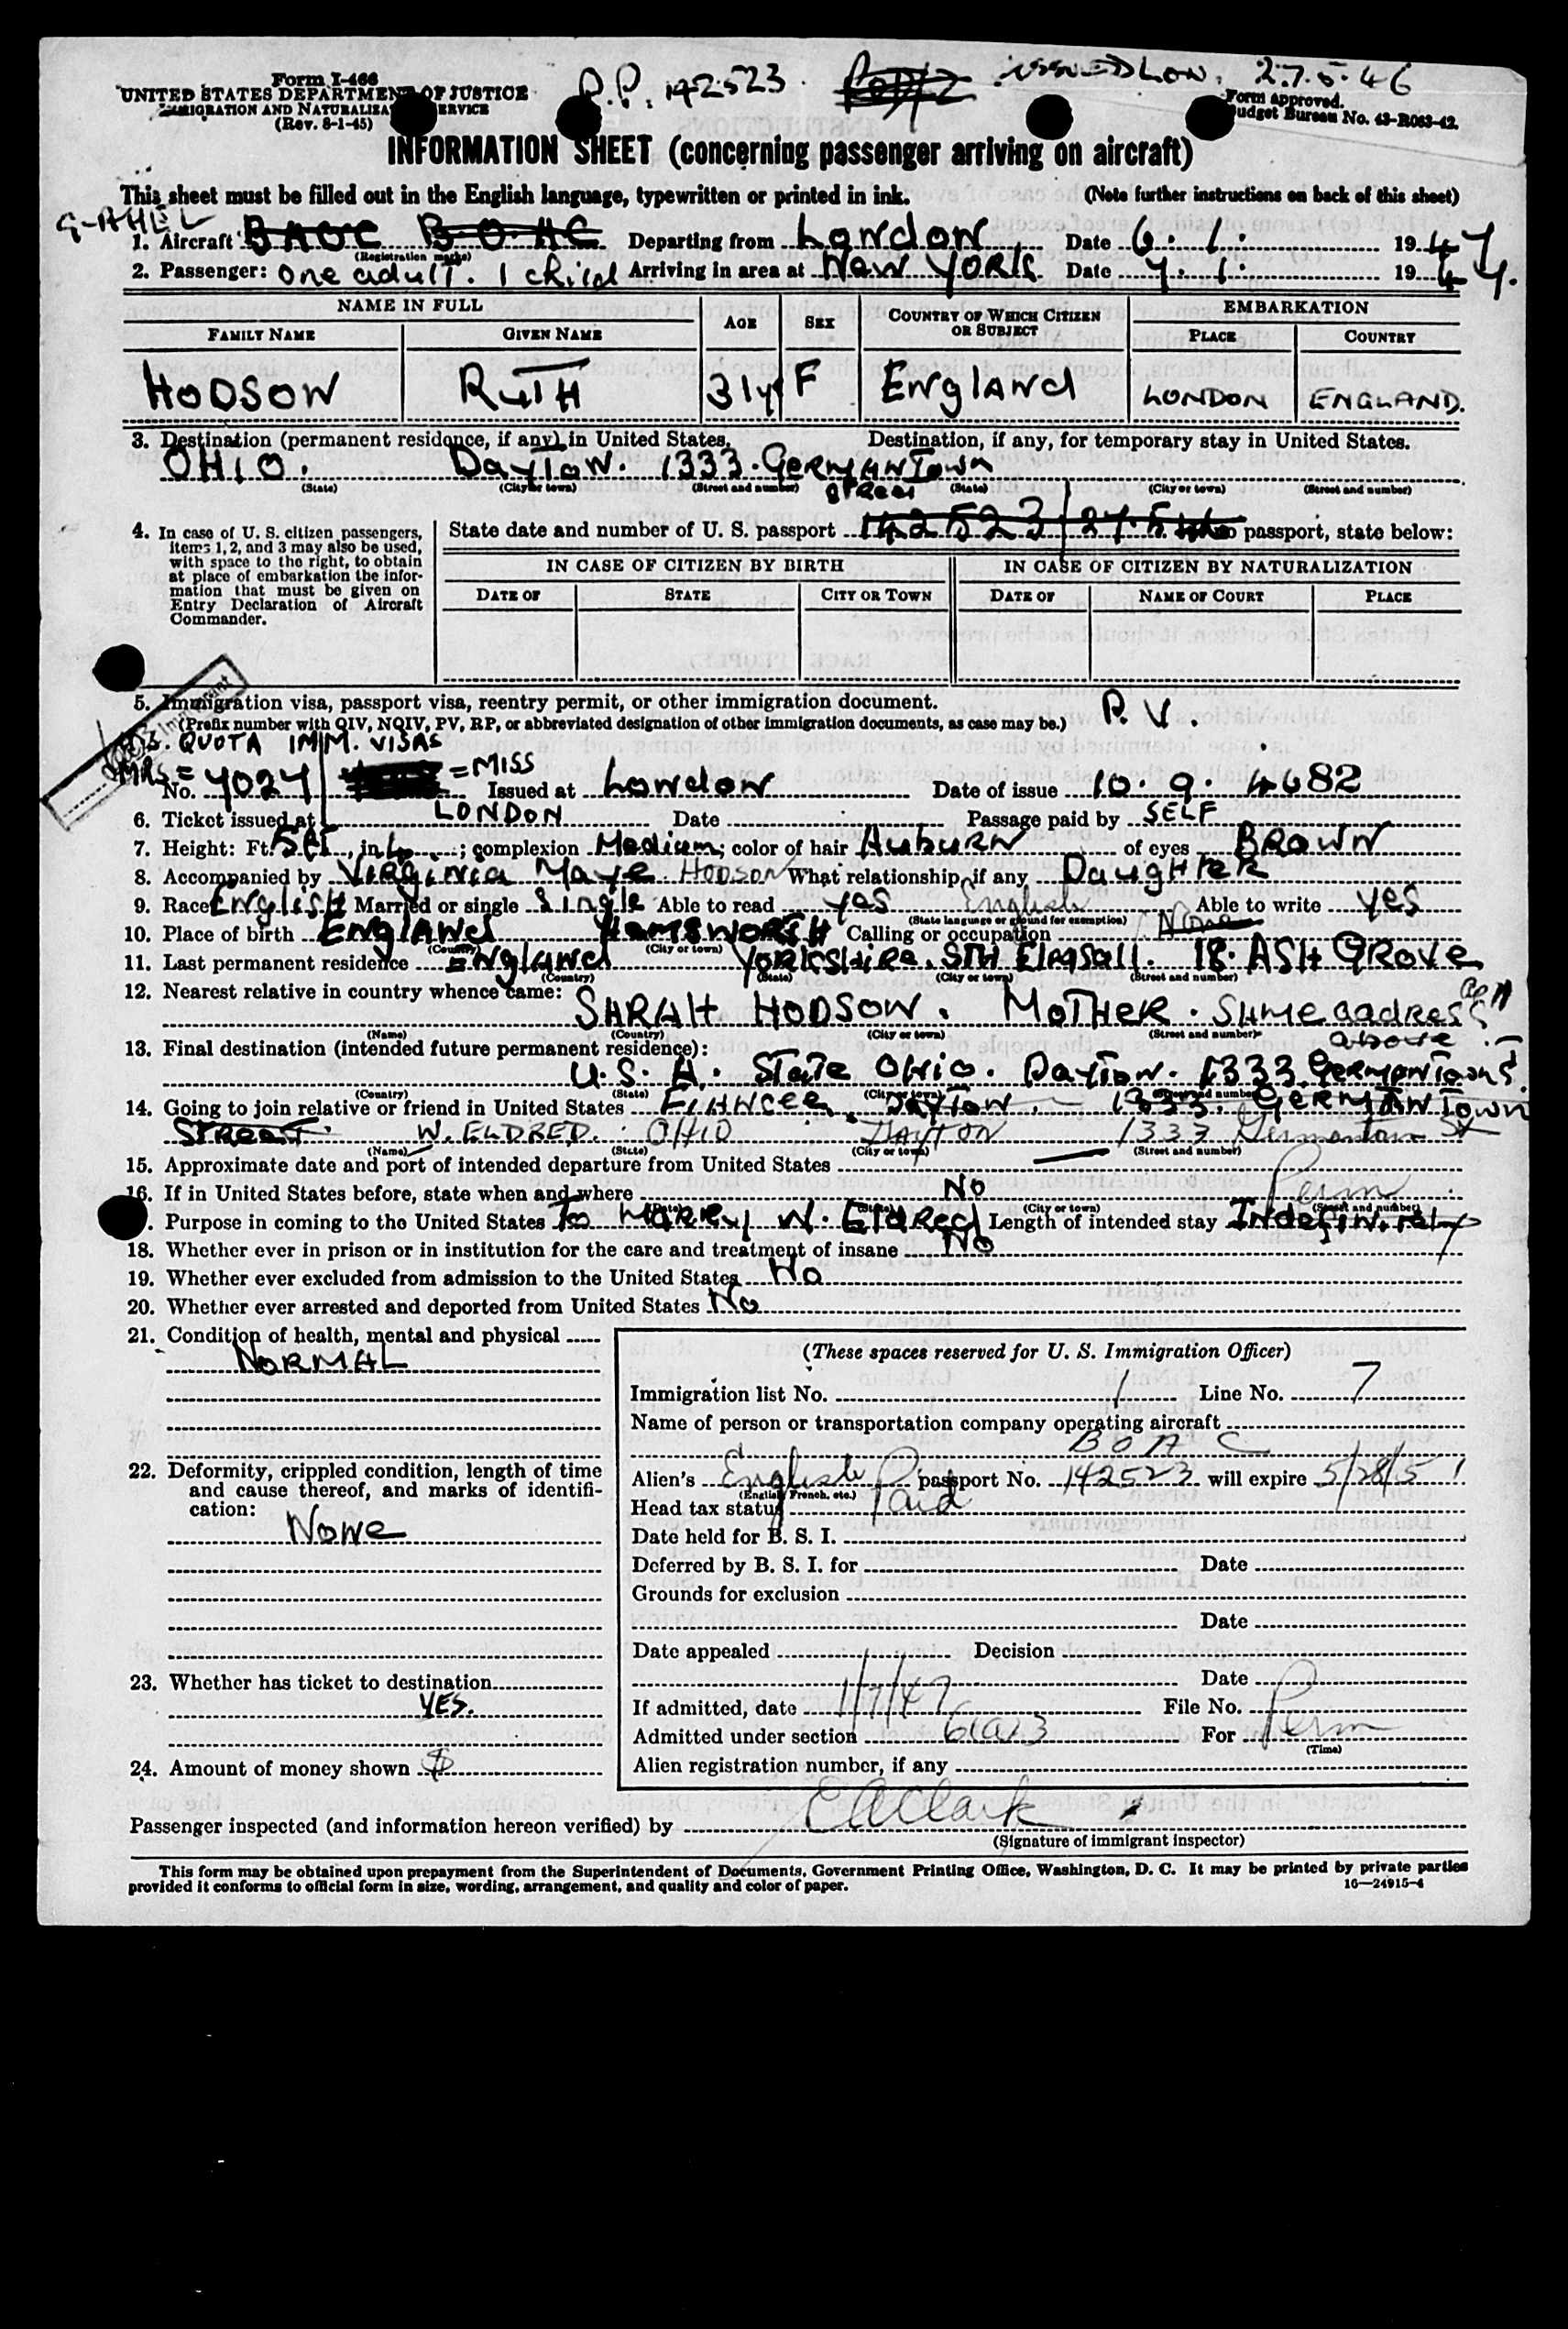 Form I-466
UNITED STATES DEPARTMENT OF JUSTICE
IMMIGRATION AND NATURALIZATION SERVICE
(Rev. 8-1-45)
P.P. 142523. ISSUED LON. 27.5.46
Form approved.
Budget Bureau No. 43-R063-42.
INFORMATION SHEET (concerning passenger arriving on aircraft)
This sheet must be filled out in the English language, typewritten or printed in ink. (Note further instructions on back of this sheet)
G-AHEL
1. Aircraft BAOC B.O.A.C Departing from London Date 6.1. 1947
(Registration marks)
2. Passenger: One adult. 1 child Arriving in area at New York Date 7.1. 1947.
NAME IN FULL AGE SEX COUNTRY OF WHICH CITIZEN OR SUBJECT EMBARKATION
FAMILY NAME GIVEN NAME PLACE COUNTRY
HODSON RUTH 31y F ENGLAND LONDON ENGLAND.
3. Destination (permanent residence, if any) in United States. Destination, if any, for temporary stay in United States.
OHIO. Dayton. 1333. GERMANTown
street
(State) (City or town) (Street and number) (State) (City or town) (Street and number)
4. In case of U. S. citizen passengers, items 1, 2, and 3 may also be used, with space to the right, to obtain at place of embarkation the information that must be given on Entry Declaration of Aircraft Commander.
State date and number of U. S. passport 142523 27.5. passport, state below:
IN CASE OF CITIZEN BY BIRTH IN CASE OF CITIZEN BY NATURALIZATION
DATE OF STATE CITY OR TOWN DATE OF NAME OF COURT PLACE
5. Immigration visa, passport visa, reentry permit, or other immigration document. P.V.
(Prefix number with QIV, NQIV, PV, RP, or abbreviated designation of other immigration documents, as case may be.)
QUOTA IMM. VISAS
MRS = = MISS
No. 7027 Issued at London Date of issue 10.9.4682
6. Ticket issued at LONDON Date Passage paid by SELF
7. Height: Ft. 5ft, in. 4; complexion Medium; color of hair AUBURN of eyes BROWN
8. Accompanied by VIRGINIA Maye HODSON What relationship, if any DAUGHTER
9. Race English Married or single Single Able to read yes English Able to write yes
(State language or ground for exemption)
10. Place of birth ENGLAND HEMSWORTH Calling or occupation None
(Country) (City or town)
11. Last permanent residence England Yorkshire. STH Elmsall. 18. ASH GROVE
(Country) (State) (City or town) (Street and number)
12. Nearest relative in country whence came: SARAH HODSON. MOTHER. SAME aadress as above
(Name) (Country) (City or town) (Street and number)
13. Final destination (intended future permanent residence):
U.S.A. State Ohio. Dayton. 1333 Germantown St.
(Country) (State) (City or town) (Street and number)
14. Going to join relative or friend in United States FIANCEE Dayton. 1333. GERMANTOWN
STREET. W. ELDRED. OHIO DAYTON 1333 Germantown St
(Name) (State) (City or town) (Street and number)
15. Approximate date and port of intended departure from United States —
16. If in United States before, state when and where NO Perm
(Date) (City or town) (Street and number)
. Purpose in coming to the United States To MARRY W. Eldred Length of intended stay Indefinitely
18. Whether ever in prison or in institution for the care and treatment of insane NO
19. Whether ever excluded from admission to the United States No
20. Whether ever arrested and deported from United States No
21. Condition of health, mental and physical
NORMAL
22. Deformity, crippled condition, length of time and cause thereof, and marks of identification:
None
23. Whether has ticket to destination
YES.
24. Amount of money shown $
(These spaces reserved for U. S. Immigration Officer)
Immigration list No. 1 Line No. 7
Name of person or transportation company operating aircraft
BOAC
Alien's English passport No. 142523 will expire 5/28/51
(English, French, etc.)
Head tax status Paid
Date held for B. S. I.
Deferred by B. S. I. for Date
Grounds for exclusion
Date
Date appealed Decision
Date
If admitted, date 1/7/47 File No.
Admitted under section 6(a)3 For Perm
(Time)
Alien registration number, if any
Passenger inspected (and information hereon verified) by E A Clark
(Signature of immigrant inspector)
This form may be obtained upon prepayment from the Superintendent of Documents, Government Printing Office, Washington, D. C. It may be printed by private parties
provided it conforms to official form in size, wording, arrangement, and quality and color of paper. 16—24915-4